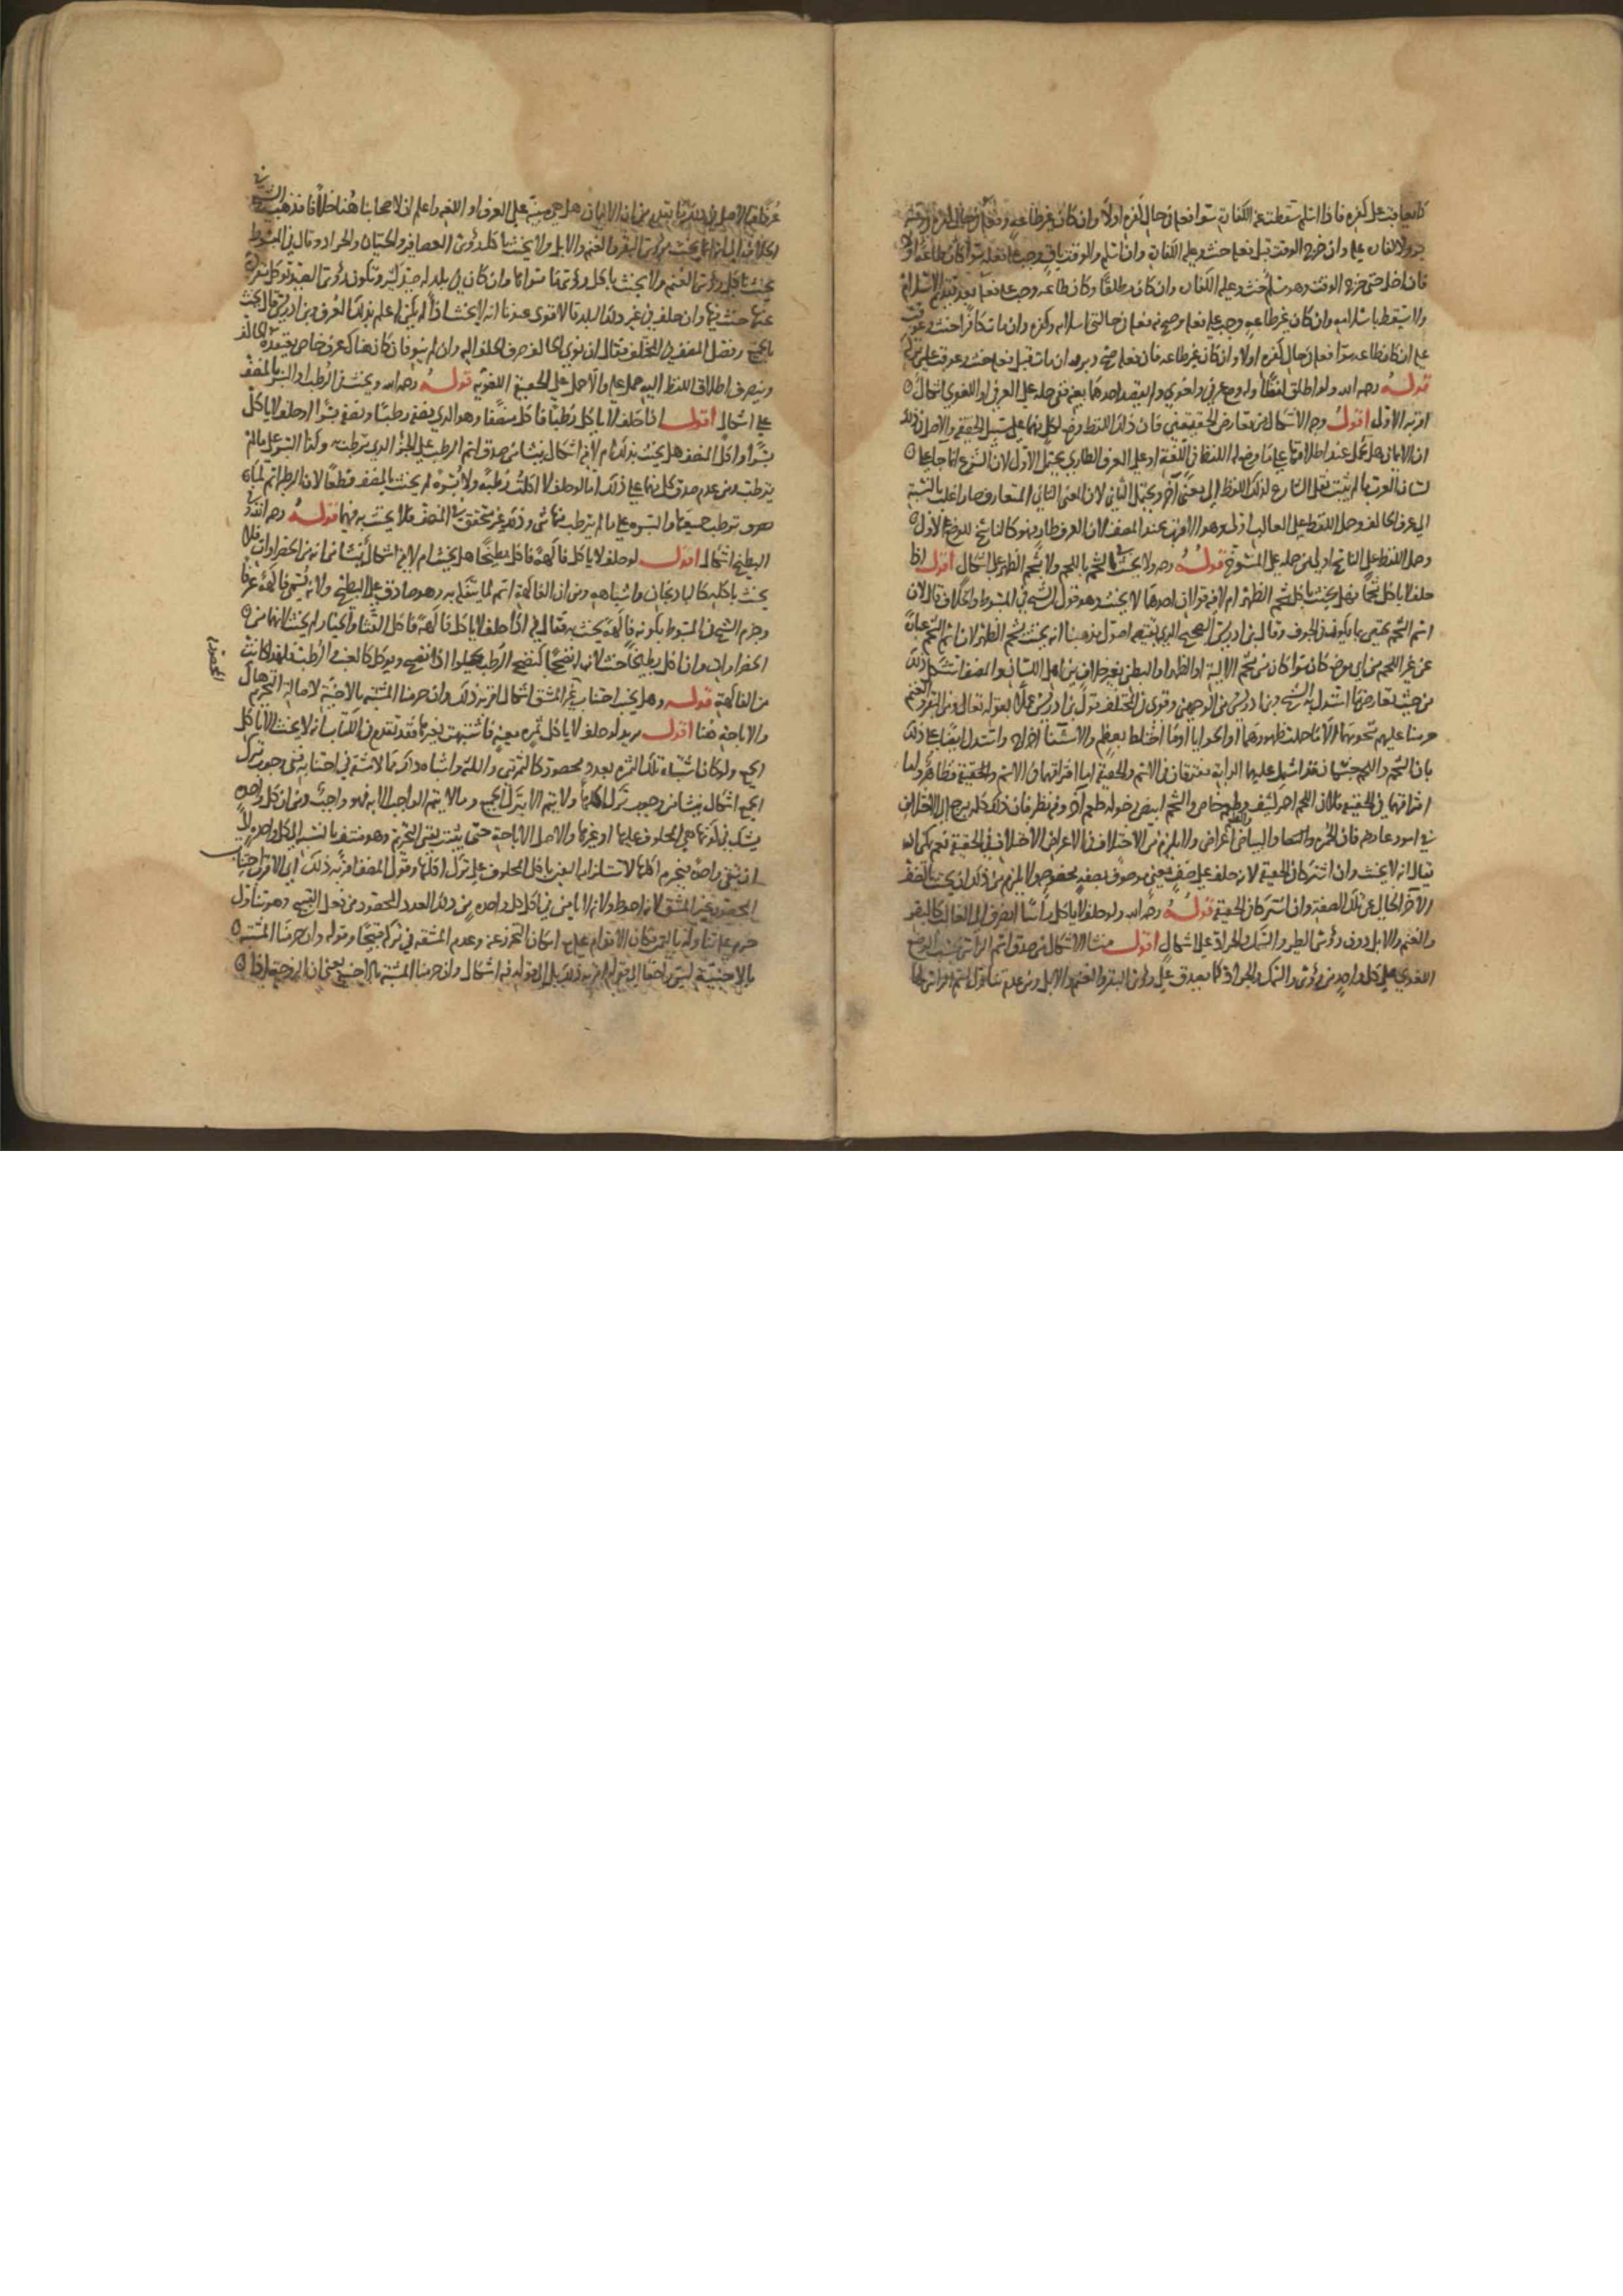 كافر يعاقب على كفره فاذا اسلم سقطت عنه الكفارة سواء فعل في حال كفره اولا وان كان غير طاعة وفعل في حال كفره
وان خرج الوقت قبل فعله حنث وعليه الكفارة وان اسلم والوقت باق وجب عليه فعله سواء كان طاعة اولا
فان اخل حتى خرج الوقت وهو مسلم حنث وعليه الكفارة وان كان مطلقا وكان طاعة وجب عليه فعله بعد الاسلام
ولا يسقط باسلامه وان كان غير طاعة وجب عليه فعله وصح منه فعله في حالتي اسلامه وكفره وان مات كافرا حنث وعوقب
عليه ان كان طاعة سواء فعله في حال كفره اولا وان كان غير طاعة فان فعله صح وان مات قبل فعله حنث وعوقب عليه
قوله رحمه الله ولو اطلق لفظا وله وضع عرفي ولغوي ولم يقصد احدهما بعينه ففي حمله على العرفي او اللغوي اشكال
اقربه الاول اقول وجه الاشكال من تعارض الحقيقتين فان ذلك اللفظ وضع لكل منهما على سبيل الحقيقة والاصل في ذلك
ان الايمان هل تحمل عند اطلاقها على ما وضع له اللفظ في اللغة او على العرف الطاري يحتمل الاول لان الشرع انما جاء على
لسان العرب ما لم يثبت نقل الشارع لذلك اللفظ الى معنى آخر ويحتمل الثاني لان المعنى الثاني المتعارف صار اغلب بالنسبة
الى عرف الحالف وحمل اللفظ على الغالب اولى وهو الاقرب عند المصنف لان العرف طار فهو كالناسخ للوضع الاول
وحمل اللفظ على الناسخ اولى من حمله على المنسوخ قوله رحمه الله ولا يحنث في الشحم باللحم ولا بشحم الظهر على اشكال اقول اذا
حلف لا ياكل شحما فهل يحنث باكل شحم الظهر ام لا فيه قولان احدهما لا يحنث وهو قول الشيخ في المبسوط والخلاف قال لان
اسم الشحم يختص بما يكون في الجوف وقال ابن ادريس الصحيح الذي تقتضيه اصول مذهبنا انه يحنث بشحم الظهر لان الشحم عبارة
عن غير اللحم من اي موضع كان سواء كان من شحم الالية او الظهر او البطن بغير خلاف بين اهل اللسان والمصنف استشكل ذلك
من حيث تعارض ما استدل به الشيخ وابن ادريس من الوجهين وقوى في المختلف قول ابن ادريس عملا بقوله تعالى ومن البقر والغنم
حرمنا عليهم شحومهما الا ما حملت ظهورهما او الحوايا او ما اختلط بعظم والاستثناء اخراج واستدل ايضا على ذلك
بان الشحم واللحم جنسان قد اشتمل عليهما الدابة مفترقان في الاسم والحقيقة اما افتراقهما في الاسم والحقيقة فظاهر واما
افتراقهما في الحقيقة فلان اللحم احمر كثيف وطعمه خاص والشحم ابيض رخو له طعم آخر وفيه نظر فان ذلك كله يرجع الى الاختلاف
في امور عارضة فان الحمرة والطعم والبياض اعراض ولا يلزم من الاختلاف في الاعراض الاختلاف في الحقيقة نعم يمكن ان
يقال انه لا يحنث وان اشتركا في الحقيقة لانه حلف على صنف معين موصوف بصفة مخصوصة ولا يلزم من ذلك ان يحنث بالصنف
الآخر الخالي عن تلك الصفة وان اشتركا في الحقيقة قوله رحمه الله ولو حلف لا ياكل رأسا انصرف الى الغالب كالبقر
والغنم والابل دون رؤس الطير والسمك والجراد على اشكال اقول منشأ الاشكال من صدق اسم الرأس بحسب الوضع
اللغوي على كل واحد من رؤس السمك والجراد كما يصدق على رؤس البقر والغنم والابل ومن عدم تناول اسم الراس لها
عرفا
الخلاف الى انه انما يحنث برؤس البقر والغنم والابل ولا يحنث باكل رؤس العصافير والحيتان والجراد وقال في المبسوط
يحنث باكل رؤس الغنم ولا يحنث باكل رؤس ما سواها وان كان في بلد له صيد كثير وتكون رؤس الصيد تؤكل مفردة
عنها حنث فيها وان حلف في غير ذلك البلد فالاقوى عندنا انه لا يحنث اذا لم يكن اعلم بذلك العرف وابن ادريس قال يحنث
بالجميع وفصل المصنف في المختلف فقال ان نوى الحالف صرف الحلف اليه وان لم ينو فان كان هناك عرف خاص يعتقده الحالف
وينصرف اطلاق اللفظ اليه حمل عليه والا حمل على الحقيقة اللغوية قوله رحمه الله ويحنث في الرطب او البسر بالمنصف
على اشكال اقول اذا حلف لا ياكل رطبا فاكل منصفا وهو الذي نصفه رطبا ونصفه بسرا او حلف لا ياكل
بسرا واكل المنصف هل يحنث بذلك ام لا فيه اشكال ينشأ من صدق اسم الرطب على الجزء الذي ترطب منه وكذا البسر على ما لم
يترطب ومن عدم صدق كل منهما على ذلك اما لو حلف لا اكلت رطبة ولا بسرة لم يحنث بالمنصف قطعا لان الرطبة اسم لما
ترطب جميعها والبسرة على ما لم يترطب منها شي وذلك غير متحقق في المنصف فلا يحنث به فيهما قوله رحمه الله وفي
البطيخ اشكال اقول لو حلف لا ياكل فاكهة فاكل بطيخا هل يحنث ام لا فيه اشكال ينشأ من انه من الخضراوات فلا
يحنث باكله كالباذنجان واشباهه ومن ان الفاكهة اسم لما يتفكه به وهو صادق على البطيخ ولانه يسمى فاكهة عرفا
وجزم الشيخ في المبسوط بكونه فاكهة يحنث به فقال فيه اذا حلف لا ياكل فاكهة فاكل القثاء والخيار لم يحنث لانهما من
الخضراوات وان اكل بطيخا حنث لان له نضجا كنضج الرطب يحلوا اذا نضج ويؤكل كالعنب والرطب فلهذا كانت
من الفاكهة قوله وهل يجب اجتناب غير المشق اشكال اقربه ذلك وان حرمنا المشتبه بالاجنبية لاصالة التحريم هناك
والاباحة هنا اقول يريد لو حلف لا ياكل ثمرة معينة فاشتبهت بغيرها فقد تقدم في الكتاب انه لا يحنث الا باكل
الجميع ولو كان اشتباه تلك الثمرة بعدد محصور كالثمرتين والثلث واشباه ذلك مما لا مشقة في اجتنابه ففي وجوب ترك
الجميع اشكال ينشأ من وجوب ترك اكلها ولا يتم الا بترك الجميع وما لا يتم الواجب الا به فهو واجب ومن ان كل واحدة
يشك في كونها هي المحلوف عليها او غيرها والاصل الاباحة حتى يثبت يقين التحريم وهو منتف بالنسبة الى كل واحدة الا
ان تبقى واحدة فيحرم اكلها لاستلزامه اليقين باكل المحلوف على ترك اكلها وقول المصنف اقربه ذلك اي الاقرب اجتناب
المحصور بغير المشق لانه احوط ولانه لا يامن في اكل كل واحدة من ذلك العدد المحصور من فعل القبيح وهو تناول
المحصور
ما حرم عليه تناوله باليمين فكان الاقدام عليه مع امكان التحرز عنه وعدم المشقة في تركه قبيحا وقوله وان حرمنا المشتبه
بالاجنبية ليس راجعا الى قوله اقربه ذلك بل الى قوله فيه اشكال وان حرمنا المشتبه بالاجنبية يعني ان الزوجة اذا